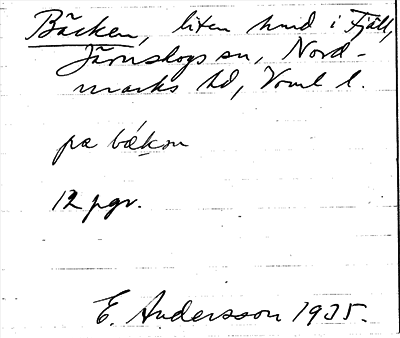 Bäcken, liten hmd i Fjäll,
Järnskogs sn, Nord-
marks hd, Vrml l.
pæ bækon
12 pgr.
E. Andersson 1935.